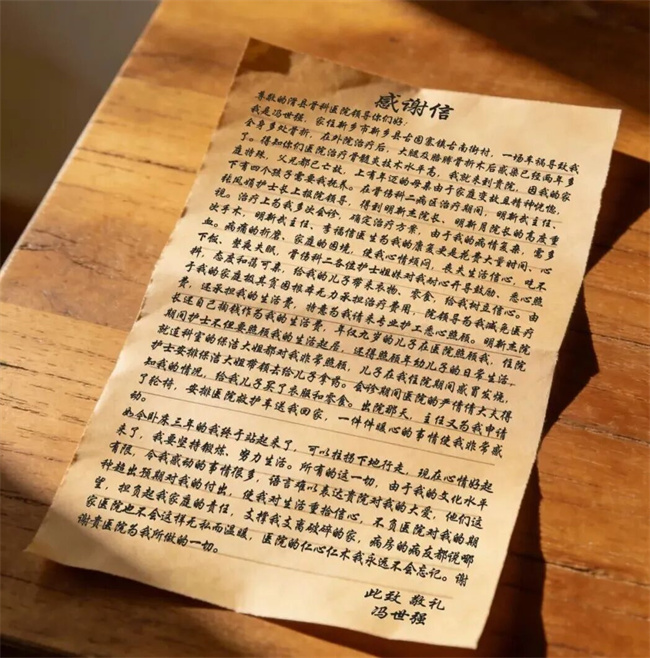 感谢信
尊敬的滑县骨科医院领导你们好，
我是冯世强，家住新乡市新乡县古固寨镇古南街村，一场车祸导致我
全身多处骨折，在外院治疗后，大腿及胳膊骨折术后感染已经两年多
了。得知你们医院治疗骨髓炎技术水平高，我就来到贵院，因我的家
庭特殊，父兄都已亡故，上有年迈的母亲由于家庭变故且精神忧惚，
下有四个孩子需要我抚养。在骨伤科二病区治疗期间，明新武主任、
陆凤娟护士长上报院领导，得到明新杰院长、明新月院长的高度重
视。治疗上为我多次会诊，确定治疗方案，由于我的病情复杂，需多
次手术，明新武主任、李福信医生为我的康复更是花费大量时间、心
血。病痛的折磨，家庭的困境，使我心情烦闷，丧失生活信心，吃不
下饭、整夜失眠，骨伤科二各位护士姐妹对我耐心开导鼓励，悉心照
料，态度和蔼可亲，给我的儿子带来衣物、零食，给我树立信心。由
于我的家庭极其贫困根本无力承担治疗费用，院领导为我减免医疗
费，还承担我的生活费，特意为我请来专业护工悉心照顾。明新杰院
长还自己掏钱作为我的生活费，年仅九岁的儿子在医院照顾我，住院
期间护士不但要照顾我的生活起居，还得照顾年幼儿子的日常生活，
就连科室的保洁大姐都对我非常照顾，儿子在我住院期间感冒发烧，
护士安排保洁大姐带领去给儿子拿药。会诊期间医院的严情情大夫得
知我的情况，给我儿子买了来服和零食。出院那天，主任又为我申请
了轮椅，安排医院救护车送我回家，一件件暖心的事情使我非常感
动。
如今卧床三年的我终于站起来了，可以拄拐下地行走，现在心情好起
来了，我要坚持锻炼、努力生活。所有的这一切，由于我的文化水平
有限，令我感动的事情很多，语言难以表达贵院对我的大爱，他们这
种超出预期对我的付出，使我对生活重拾信心，不负医院对我的期
望，担负起我家庭的责任，支撑我支离破碎的家，病房的病友都说哪
家医院也不会这样无私而温暖，医院的仁心仁术我永远不会忘记。谢
谢贵医院为我所做的一切。
此致 敬礼
冯世强